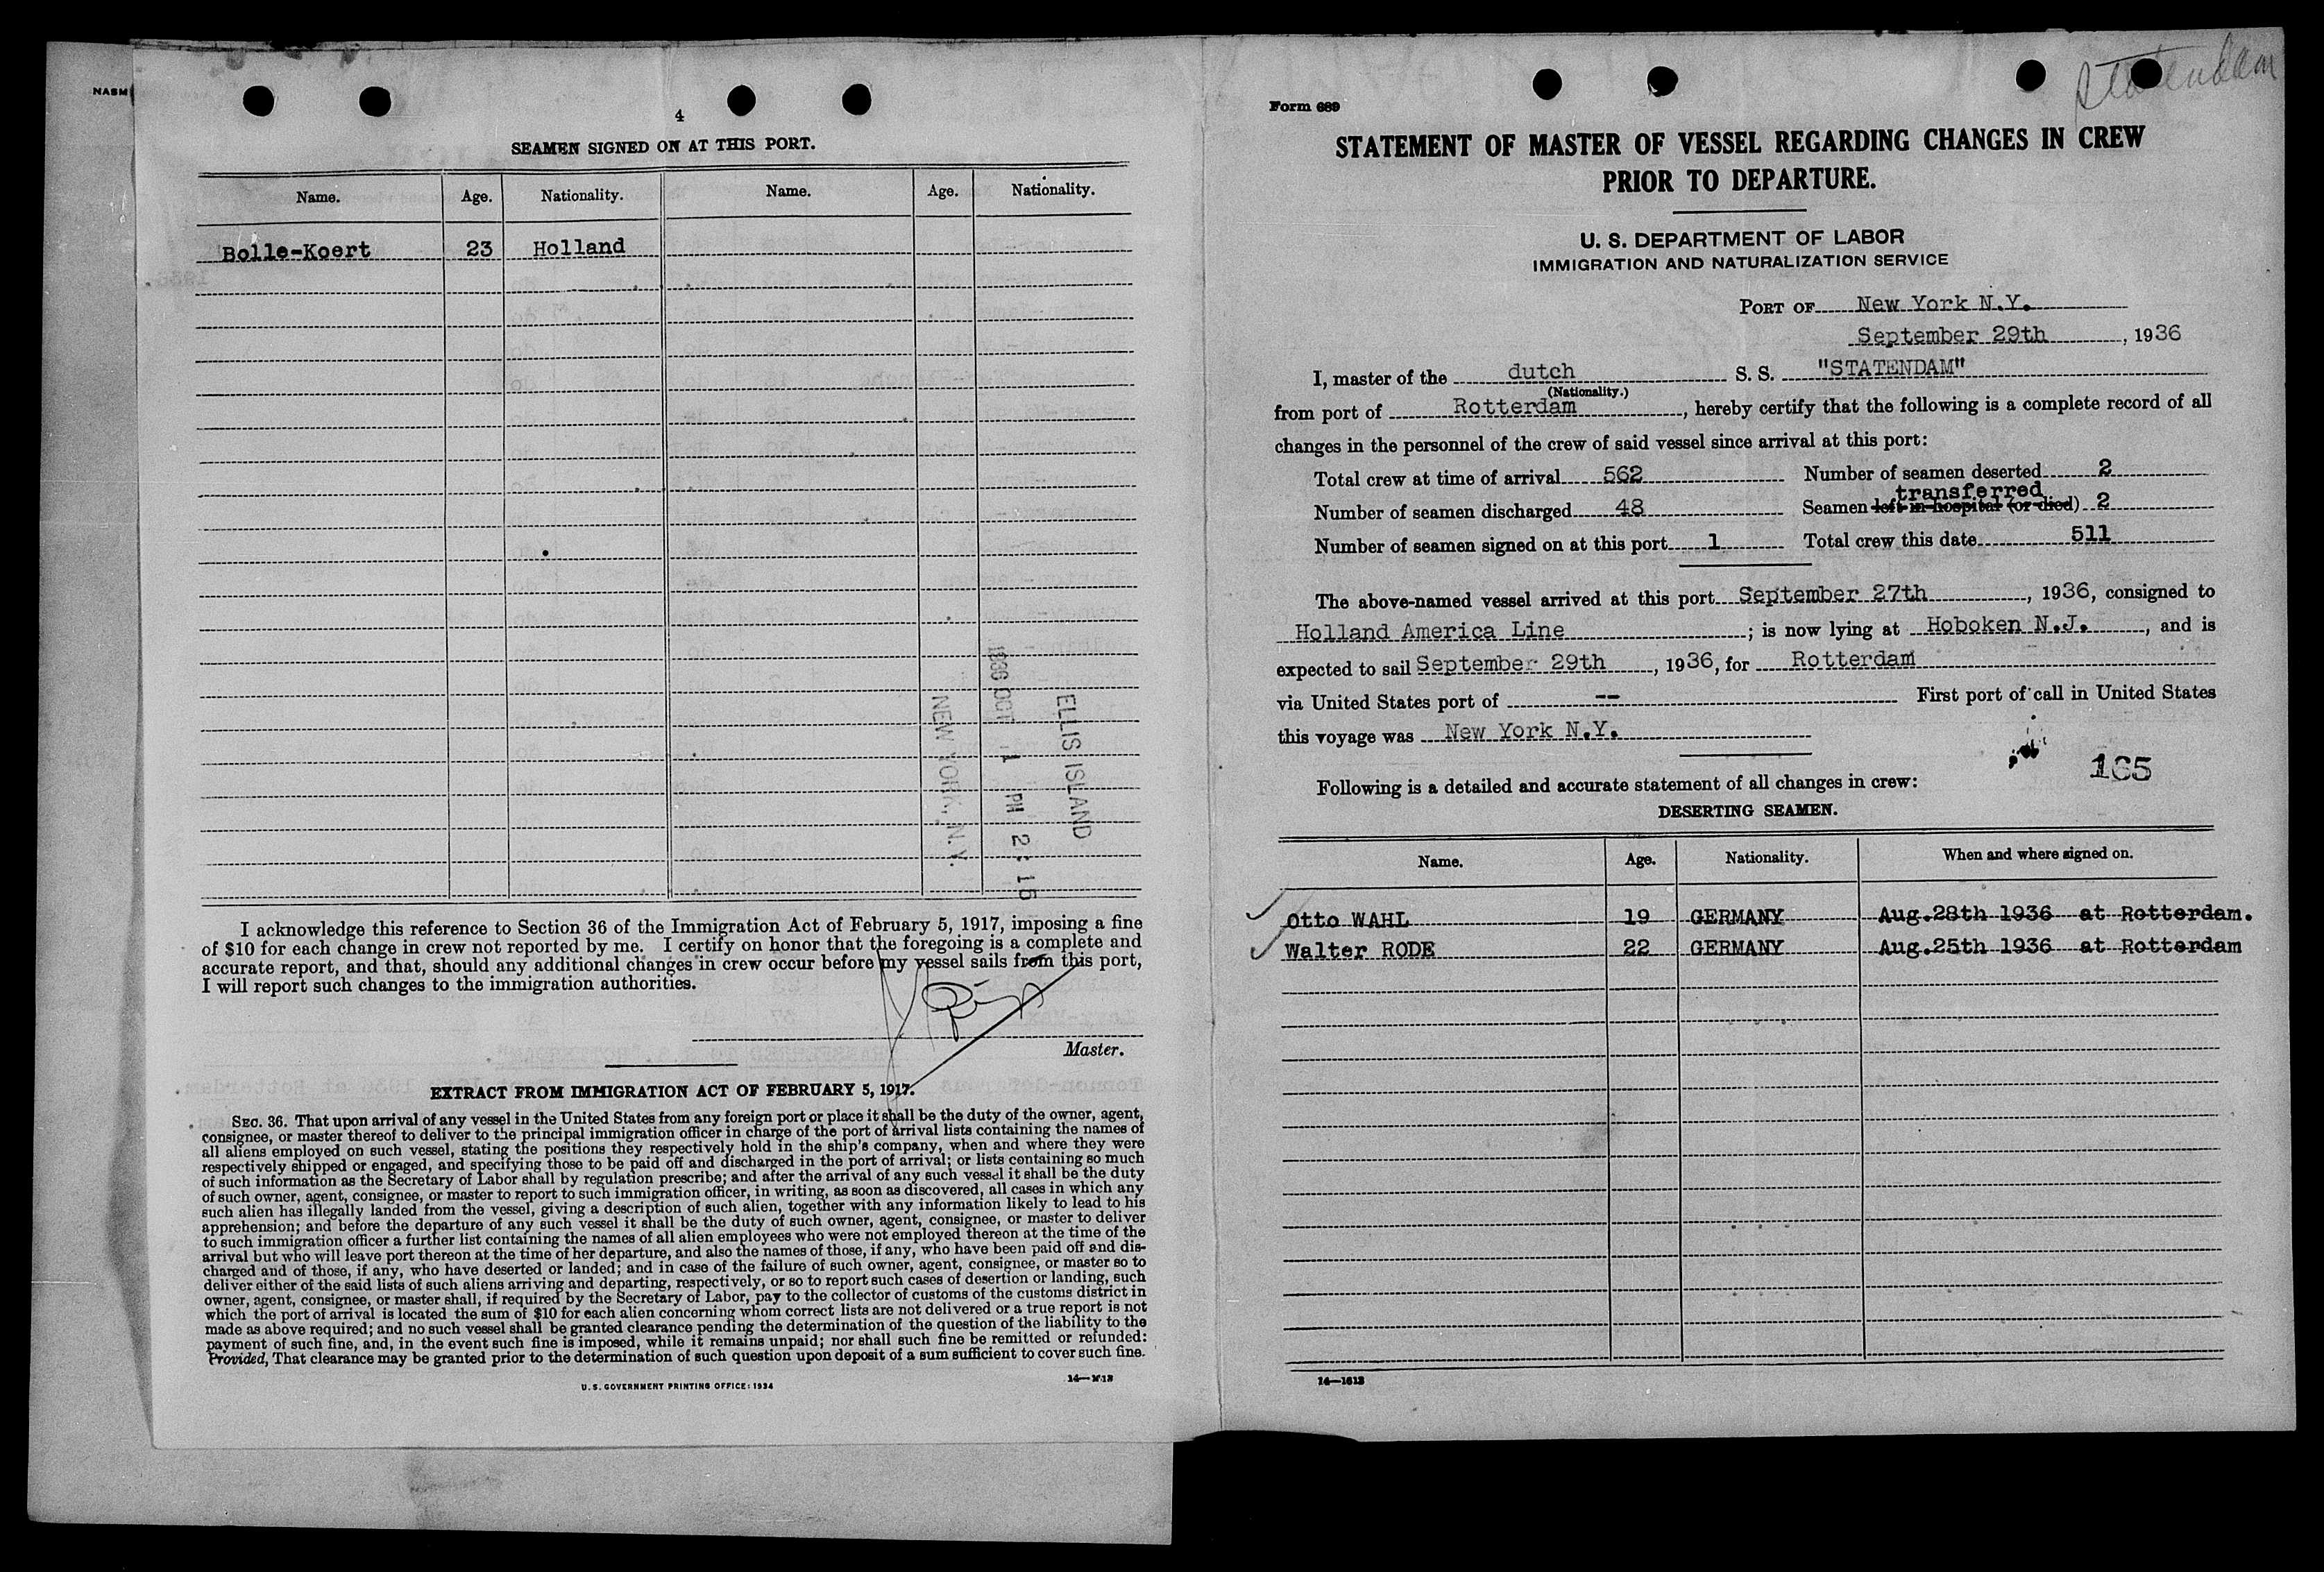 NASM
4
SEAMEN SIGNED ON AT THIS PORT.
Name. Age. Nationality. Name. Age. Nationality.
Bolle-Koert 23 Holland
ELLIS ISLAND
1936 OCT -1 PM 2:15
NEW YORK, N.Y.
I acknowledge this reference to Section 36 of the Immigration Act of February 5, 1917, imposing a fine
of $10 for each change in crew not reported by me. I certify on honor that the foregoing is a complete and
accurate report, and that, should any additional changes in crew occur before my vessel sails from this port,
I will report such changes to the immigration authorities.
Master.
EXTRACT FROM IMMIGRATION ACT OF FEBRUARY 5, 1917.
SEC. 36. That upon arrival of any vessel in the United States from any foreign port or place it shall be the duty of the owner, agent,
consignee, or master thereof to deliver to the principal immigration officer in charge of the port of arrival lists containing the names of
all aliens employed on such vessel, stating the positions they respectively hold in the ship's company, when and where they were
respectively shipped or engaged, and specifying those to be paid off and discharged in the port of arrival; or lists containing so much
of such information as the Secretary of Labor shall by regulation prescribe; and after the arrival of any such vessel it shall be the duty
of such owner, agent, consignee, or master to report to such immigration officer, in writing, as soon as discovered, all cases in which any
such alien has illegally landed from the vessel, giving a description of such alien, together with any information likely to lead to his
apprehension; and before the departure of any such vessel it shall be the duty of such owner, agent, consignee, or master to deliver
to such immigration officer a further list containing the names of all alien employees who were not employed thereon at the time of the
arrival but who will leave port thereon at the time of her departure, and also the names of those, if any, who have been paid off and dis-
charged and of those, if any, who have deserted or landed; and in case of the failure of such owner, agent, consignee, or master so to
deliver either of the said lists of such aliens arriving and departing, respectively, or so to report such cases of desertion or landing, such
owner, agent, consignee, or master shall, if required by the Secretary of Labor, pay to the collector of customs of the customs district in
which the port of arrival is located the sum of $10 for each alien concerning whom correct lists are not delivered or a true report is not
made as above required; and no such vessel shall be granted clearance pending the determination of the question of the liability to the
payment of such fine, and, in the event such fine is imposed, while it remains unpaid; nor shall such fine be remitted or refunded:
Provided, That clearance may be granted prior to the determination of such question upon deposit of a sum sufficient to cover such fine.
U. S. GOVERNMENT PRINTING OFFICE: 1934
Statendam
Form 689
STATEMENT OF MASTER OF VESSEL REGARDING CHANGES IN CREW
PRIOR TO DEPARTURE.
U. S. DEPARTMENT OF LABOR
IMMIGRATION AND NATURALIZATION SERVICE
PORT OF New York N.Y.
September 29th, 1936
I, master of the dutch S. S. "STATENDAM"
(Nationality.)
from port of Rotterdam, hereby certify that the following is a complete record of all
changes in the personnel of the crew of said vessel since arrival at this port:
Total crew at time of arrival 562 Number of seamen deserted 2
transferred
Number of seamen discharged 48 Seamen left in hospital (or died) 2
Number of seamen signed on at this port 1 Total crew this date 511
The above-named vessel arrived at this port September 27th, 1936, consigned to
Holland America Line; is now lying at Hoboken N.J., and is
expected to sail September 29th, 1936, for Rotterdam
via United States port of -- First port of call in United States
this voyage was New York N.Y.
165
Following is a detailed and accurate statement of all changes in crew:
DESERTING SEAMEN.
Name. Age. Nationality. When and where signed on.
Otto WAHL 19 GERMANY Aug.28th 1936 at Rotterdam.
Walter RODE 22 GERMANY Aug.25th 1936 at Rotterdam
14—1613